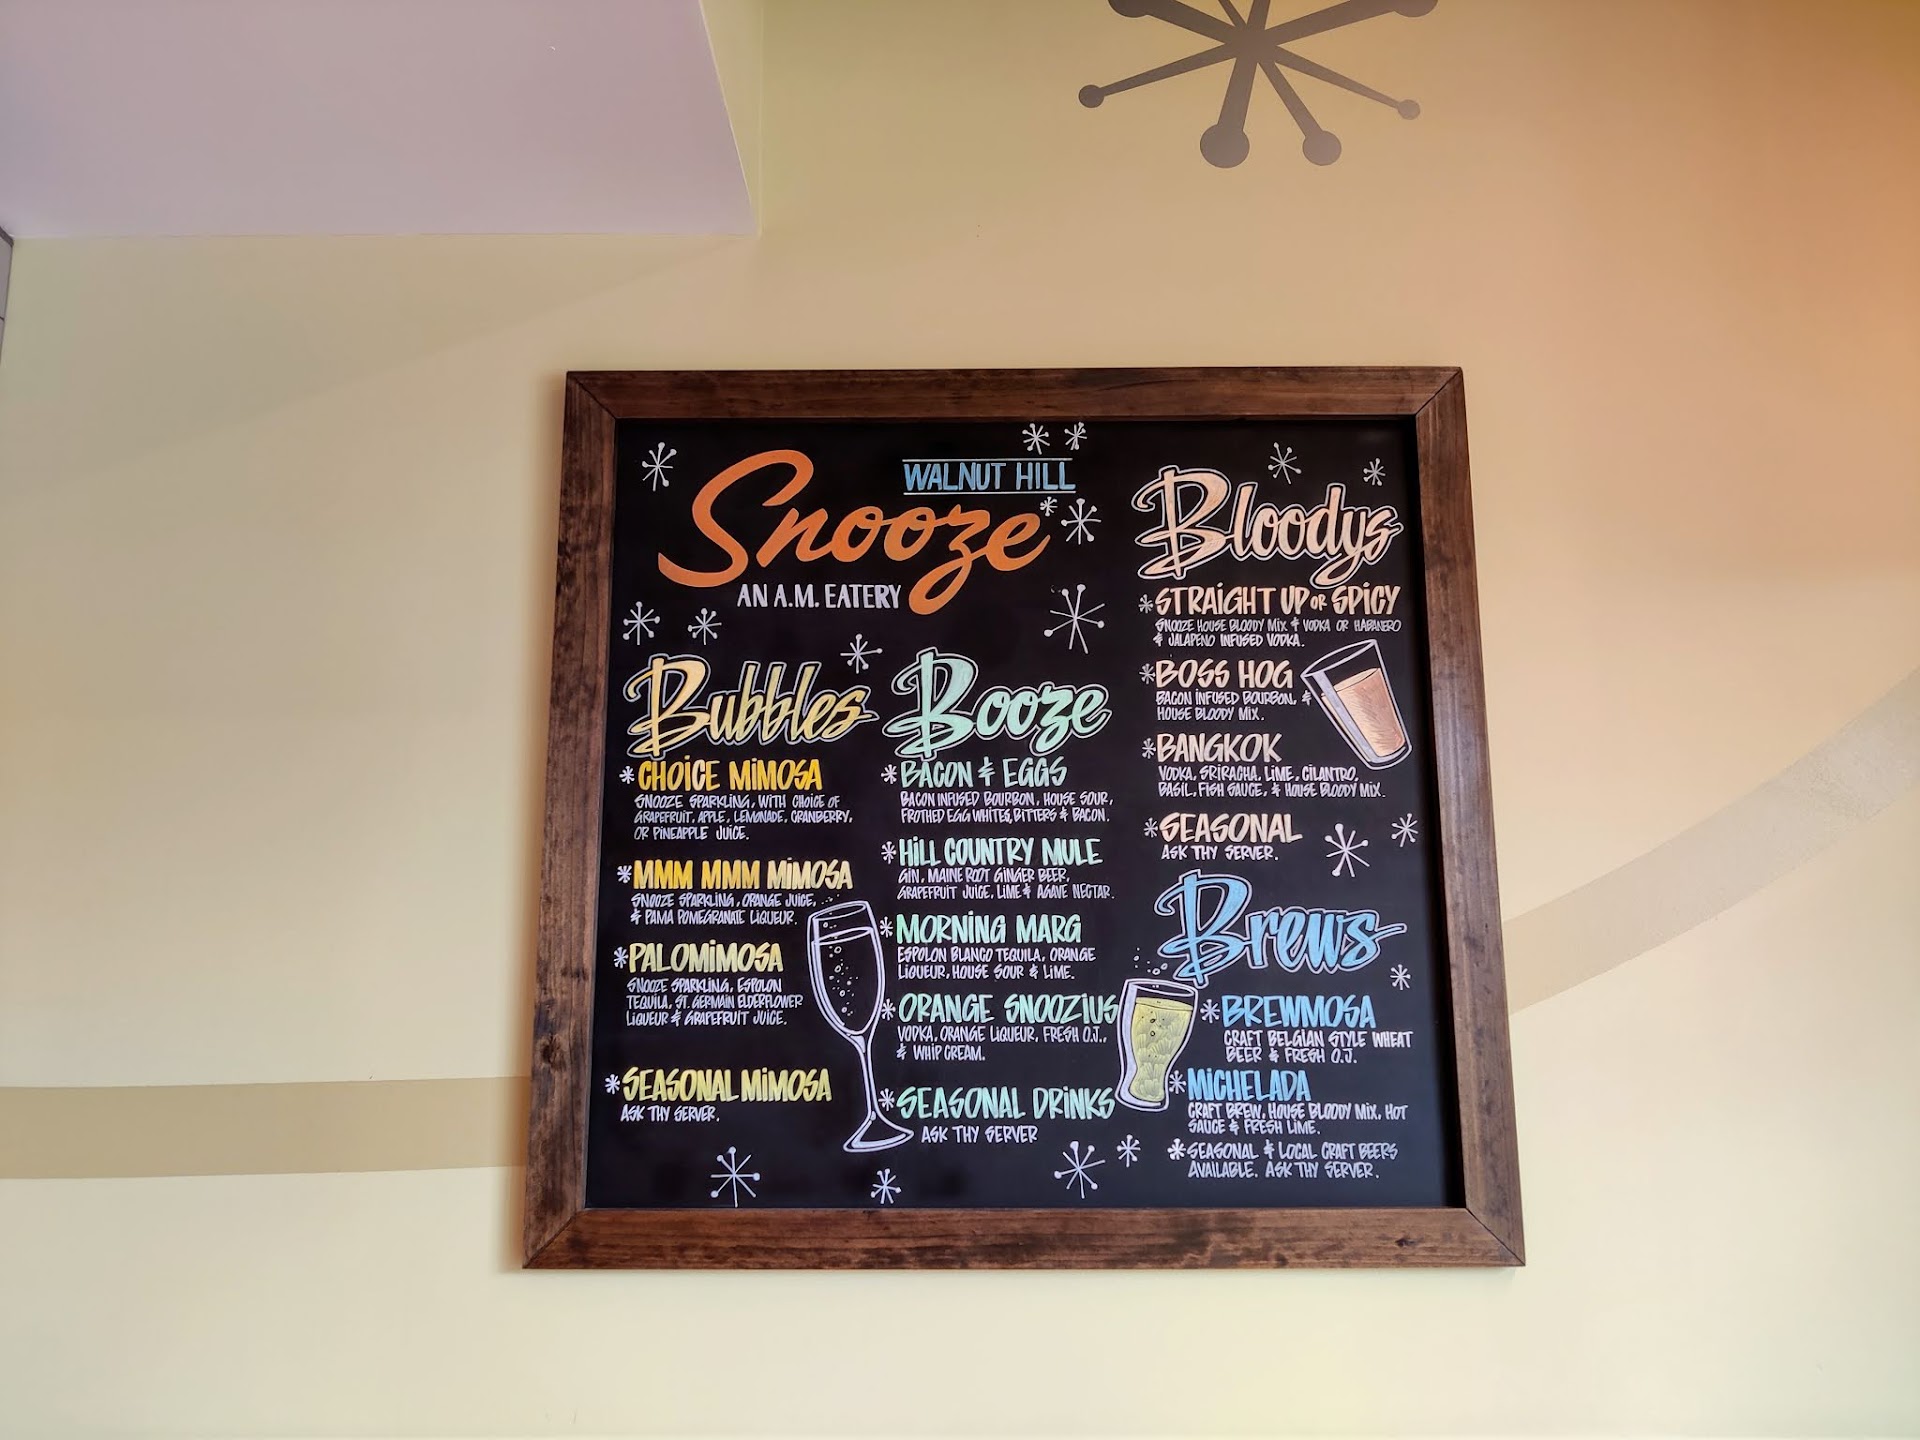 WALNUT HILL
Snooze
AN A.M. EATERY
Bubbles
*CHOICE MIMOSA
SNOOZE SPARKLING, WITH CHOICE OF
GRAPEFRUIT, APPLE, LEMONADE, CRANBERRY,
OR PINEAPPLE JUICE.
*MMM MMM MIMOSA
SNOOZE SPARKLING, ORANGE JUICE,
& PAMA POMEGRANATE LIQUEUR.
*PALOMIMOSA
SNOOZE SPARKLING, ESPOLON
TEQUILA, ST. GERMAIN ELDERFLOWER
LIQUEUR & GRAPEFRUIT JUICE.
*SEASONAL MIMOSA
ASK THY SERVER.
Booze
*BACON & EGGS
BACON INFUSED BOURBON, HOUSE SOUR,
FROTHED EGG WHITES, BITTERS & BACON.
*HILL COUNTRY MULE
GIN, MAINE ROOT GINGER BEER,
GRAPEFRUIT JUICE, LIME & AGAVE NECTAR.
*MORNING MARG
ESPOLON BLANCO TEQUILA, ORANGE
LIQUEUR, HOUSE SOUR & LIME.
*ORANGE SNOOZIUS
VODKA, ORANGE LIQUEUR, FRESH O.J.,
& WHIP CREAM.
*SEASONAL DRINKS
ASK THY SERVER
Bloodys
*STRAIGHT UP OR SPICY
SNOOZE HOUSE BLOODY MIX & VODKA OR HABANERO
& JALAPENO INFUSED VODKA.
*BOSS HOG
BACON INFUSED BOURBON, &
HOUSE BLOODY MIX.
*BANGKOK
VODKA, SRIRACHA, LIME, CILANTRO,
BASIL, FISH SAUCE, & HOUSE BLOODY MIX.
*SEASONAL
ASK THY SERVER.
Brews
*BREWMOSA
CRAFT BELGIAN STYLE WHEAT
BEER & FRESH O.J.
*MICHELADA
CRAFT BREW, HOUSE BLOODY MIX, HOT
SAUCE & FRESH LIME.
*SEASONAL & LOCAL CRAFT BEERS
AVAILABLE. ASK THY SERVER.